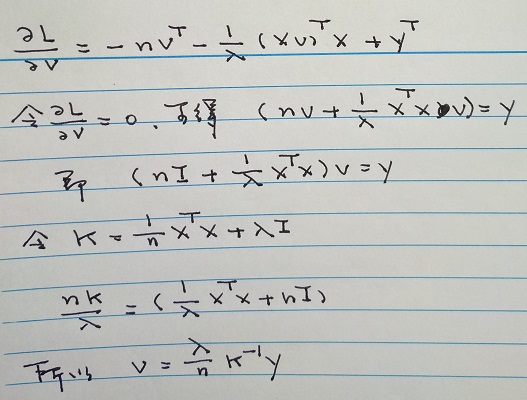 ∂L/∂v = - nv^T - 1/λ (Xv)^T X + y^T
令 ∂L/∂v = 0. 可得 (nv + 1/λ X^T X v) = y
即 (nI + 1/λ X^T X) v = y
令 K = 1/n X^T X + λI
nK/λ = (1/λ X^T X + nI)
所以 v = λ/n K^-1 y